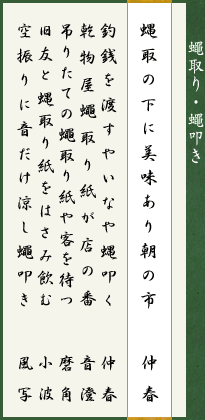 蠅取り・蠅叩き
蠅取の下に美味あり朝の市 仲春
釣銭を渡すやいなや蠅叩く 仲春
乾物屋蠅取り紙が店の番 音澄
吊りたての蠅取り紙や客を待つ 磨角
旧友と蠅取り紙をはさみ飲む 小波
空振りに音だけ涼し蠅叩き 風写